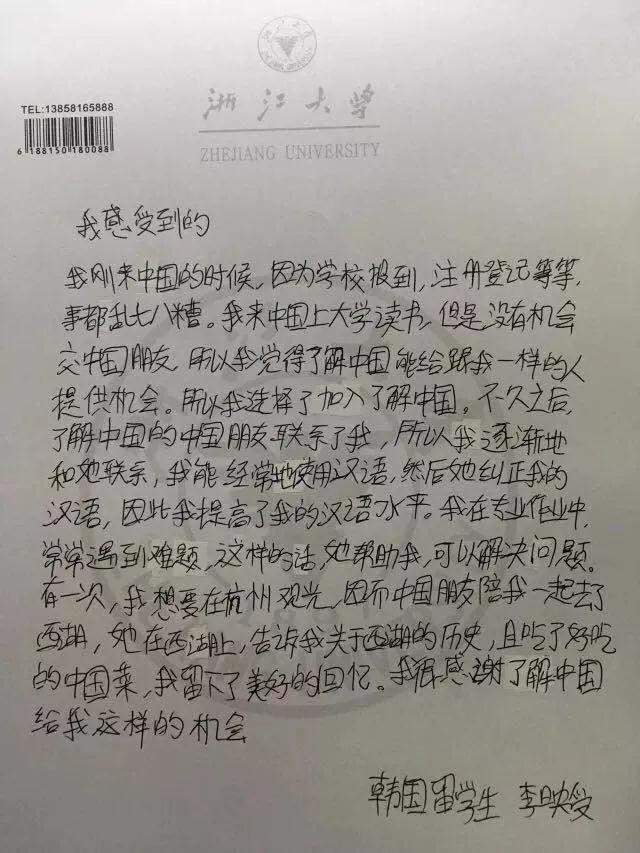 浙江大学
ZHEJIANG UNIVERSITY
TEL:13858165888
6 188150 180088
我感受到的
我刚来中国的时候,因为学校报到,注册登记等等,
事都乱七八糟。我来中国上大学读书,但是没有机会
交中国朋友,所以我觉得了解中国能给跟我一样的人
提供机会。所以我选择了加入了解中国。不久之后,
了解中国的中国朋友联系了我,所以我逐渐地
和她联系,我能经常地使用汉语,然后她纠正我的
汉语,因此我提高了我的汉语水平。我在专业作业中,
常常遇到难题,这样的话,她帮助我,可以解决问题。
有一次,我想要在杭州观光,因而中国朋友陪我一起去了
西湖,她在西湖上,告诉我关于西湖的历史,且吃了好吃
的中国菜,我留下了美好的回忆。我很感谢了解中国
给我这样的机会
韩国留学生 李映受